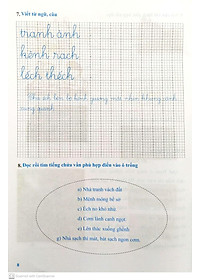 7. Viết từ ngữ, câu
tranh ảnh
kênh rạch
lếch thếch
8. Đọc rồi tìm tiếng chứa vần phù hợp điền vào ô trống
a) Nhà tranh vách đất
b) Mênh mông bể sở
c) Ếch no khó nhử.
d) Cơm lành canh ngọt
e) Lên thác xuống ghềnh
g) Nhà sạch thì mát, bát sạch ngon cơm.
8